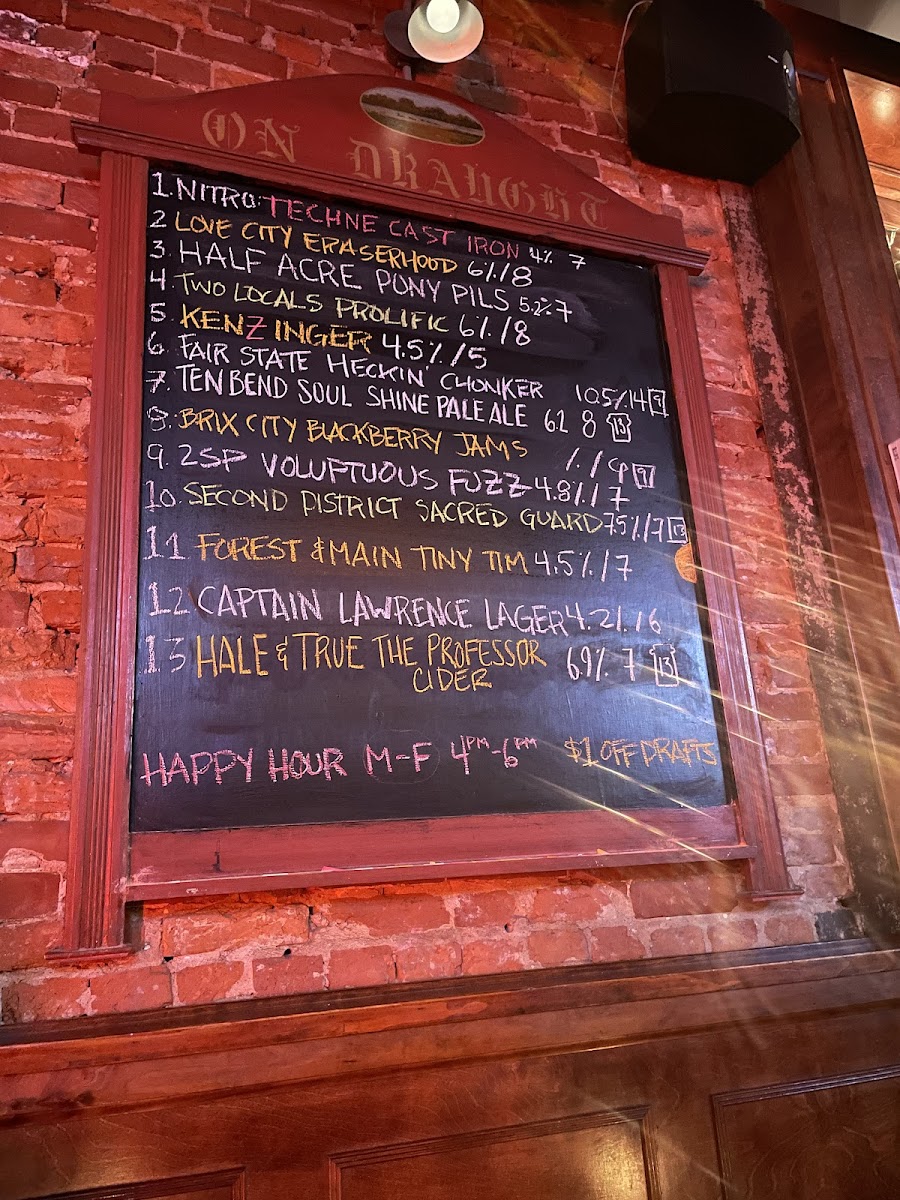 ON DRAUGHT
1. NITRO: TECHNE CAST IRON 4% 7
2 LOVE CITY ERASERHOOD 6%/8
3. HALF ACRE PONY PILS 5.2% 7
4. TWO LOCALS PROLIFIC 6%/8
5. KENZINGER 4.5%/5
6. FAIR STATE HECKIN' CHONKER 10.5%/14 9
7. TEN BEND SOUL SHINE PALE ALE 6.2 8 13
8. BRIX CITY BLACKBERRY JAMS
9. 2SP VOLUPTUOUS FUZZ 4.8%/7
10. SECOND DISTRICT SACRED GUARD 7.5%/7 13
11 FOREST & MAIN TINY TIM 4.5%/7
12 CAPTAIN LAWRENCE LAGER 4.2%/6
13 HALE & TRUE THE PROFESSOR 6.9% 7 13
CIDER
HAPPY HOUR M-F 4PM-6PM $1 OFF DRAFTS